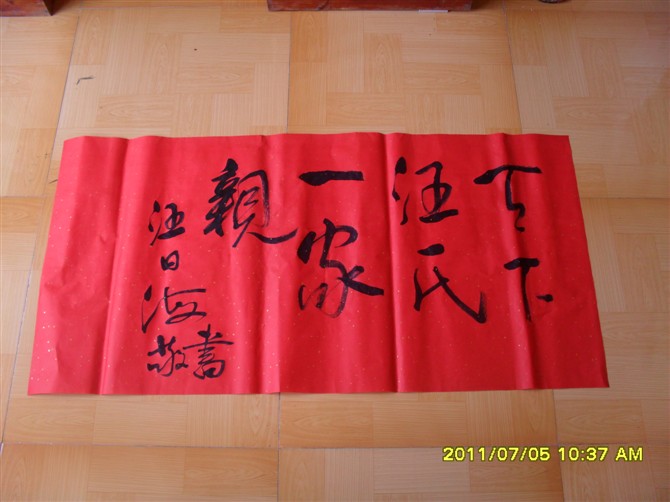 天下
汪氏
一家
親
汪日海
敬書
2011/07/05 10:37 AM